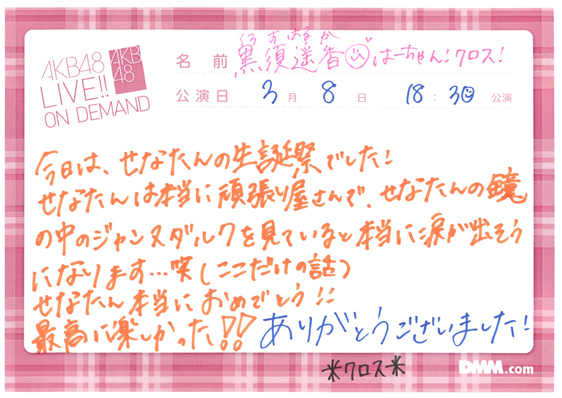 AKB48
LIVE!!
ON DEMAND
AKB
48
くろすはるか
名前 黒須遥香 はーちゃん！クロス！
公演日 3月8日 18:30 公演
今日は、せなたんの生誕祭でした！
せなたんは本当に頑張り屋さんで、せなたんの鏡
の中のジャンヌダルクを見ていると本当に涙が出そう
になります…笑（ここだけの話）
せなたん本当におめでとう!!
最高に楽しかった!! ありがとうございました！
*クロス*
DMM.com